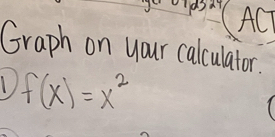 (ACT
Graph on your calculator.
1) f(x) = x²